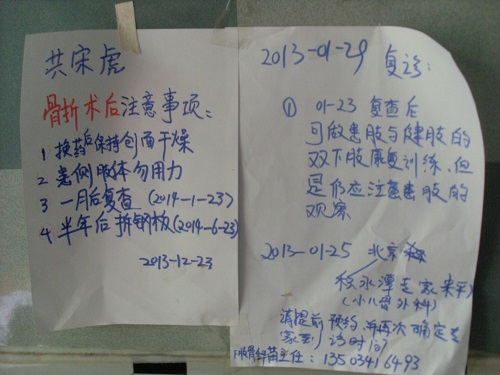 共宋虎
骨折术后注意事项:
1 换药后保持包面干燥
2 患侧肢体勿用力
3 一月后复查 (2014-1-23)
4 半年后拆钢板(2014-6-23)
2013-12-23
2013-01-29 复诊:
① 01-23 复查后
可做患肢与健肢的
双下肢康复训练.但
是仍应注意患肢的
观察
2013-01-25 北京
积水潭
(小儿骨外科)
请提前预约,并再次确定
诊时间?
主任: 13503416493